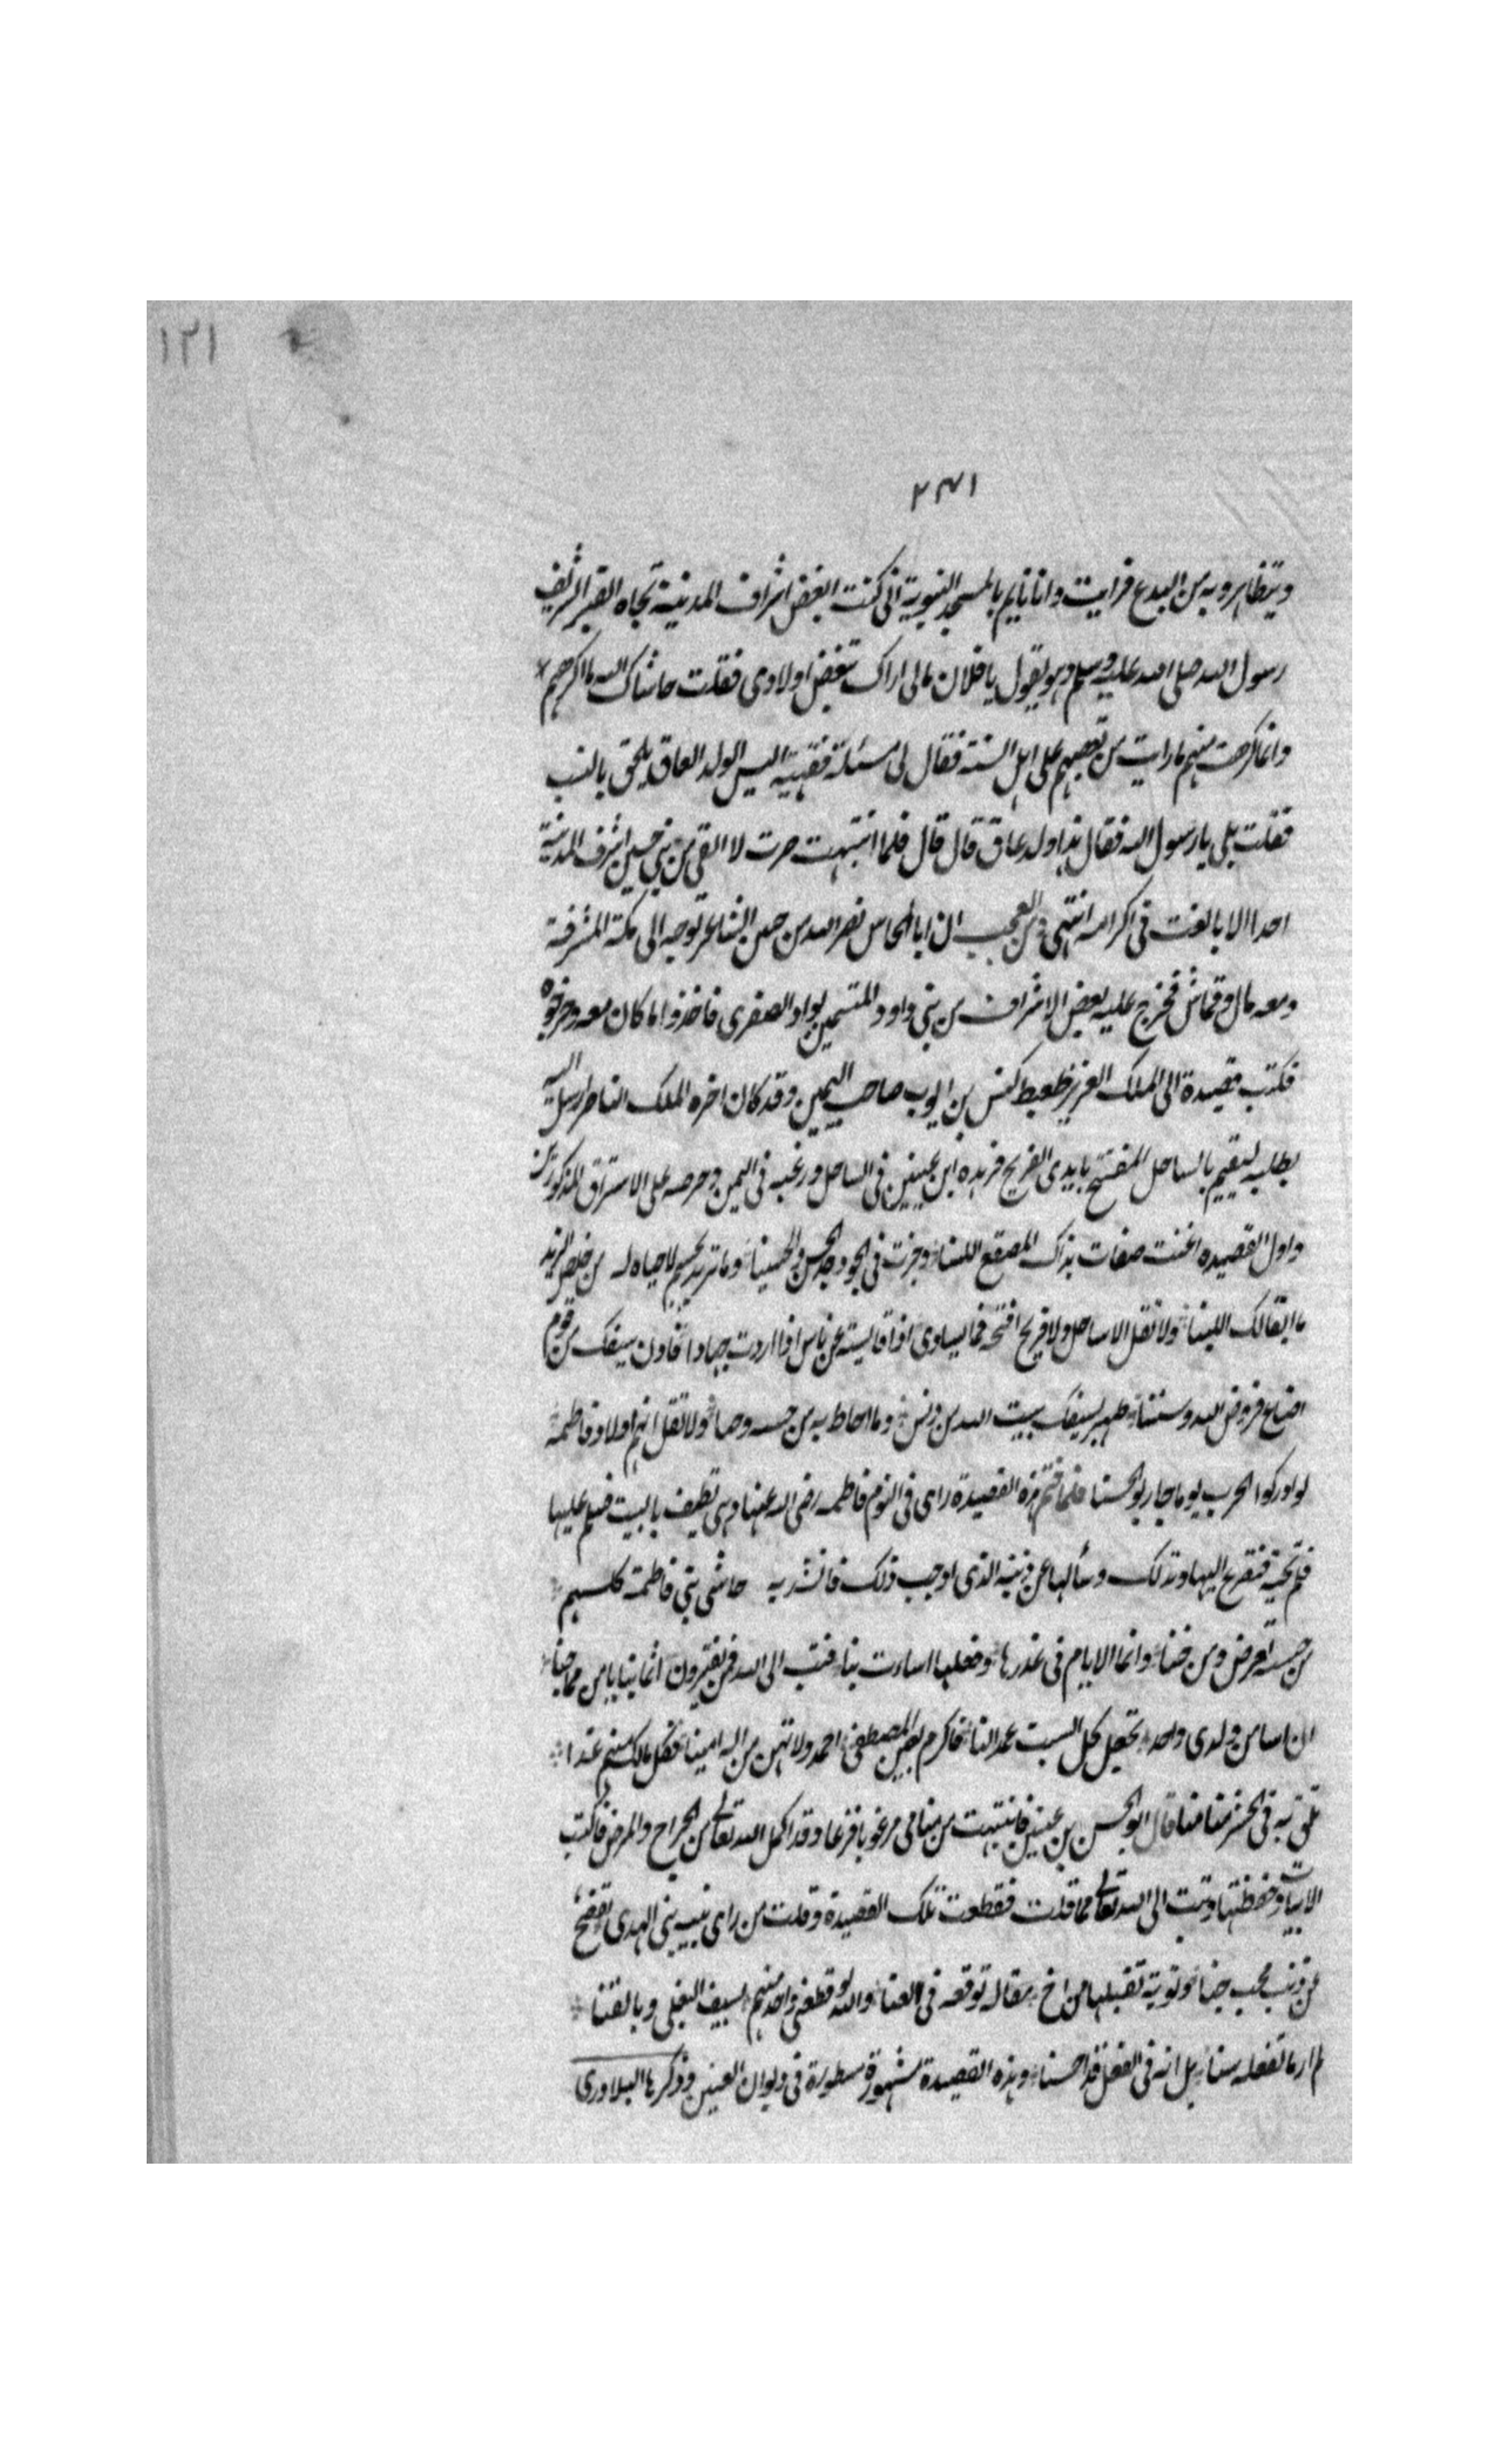 ١٢١
٢٣١
ويتظاهرو به من البدع فرايت وانا نايم بالمسجد النبوية انى كنت ابغض اشراف المدينة تجاه القبر الشريف
رسول الله صلى الله عليه وسلم وهو يقول يا فلان مالى اراك تبغض اولادى فقلت حاشاك الله ما اكرههم
وانما كرهت منهم ما رايت من تعصبهم على اهل السنة فقال لى مسئلة فقهية اليس الولد العاق يلحق بالنسب
فقلت بلى يا رسول الله فقال هذا ولد عاق قال قال فلما انتبهت صرت لا القى من بنى حسين اشرف المدينة
احدا الا بالغت فى اكرامه انتهى ومن العجب ان ابا المحاسن نصر الله بن عنين الشاعر توجه الى مكة المشرفة
ومعه مال وقماش فخرج عليه بعض الاشراف من بنى داود المقيمين بواد الصفرى فاخذوا ما كان معه وجرحوه
فكتب قصيدة الى الملك العزيز طغتكين بن ايوب صاحب اليمن وقد كان اخوه الملك الناصر ارسل اليه
يطلبه ليقيم بالساحل المفتتح بايدى الفرنج فزهده ابن عنين فى الساحل ورغبه فى اليمن وحرصه على الاشراف المذكورين
واول القصيده اغنت صفات نداك المصقع اللسنا وجزت فى الجود حد الحسن والحسنا وما تريد بجسم لا حياه له من خلص الزبد
ما ابقا لك اللبنا ولا تقل الا ساحل ولا فرنج افتحه فما يساوى اذا قايسته عدنا اذا اردت جهادا فادن سيفك من قوم
اضاع فروض الله وسننا طهر بسيفك بيت الله من دنس وما احاط به من خسه وخنا ولا تقل انهم اولاد فاطمة
لو ادركوا الحرب يوما حاربو الحسنا فلما ختم هذه القصيدة راى فى النوم فاطمه رضى الله عنها وهى تطيف بالبيت فسلم عليها
فلم تجبه فتضرع اليها وتذلل وسألها عن ذنبه الذى اوجب ذلك فانشدته حاشى بنى فاطمة كلهم
من خسة تعرض ومن خنا وانما الايام فى غدرها وفعلها اسارت بنا فتب الى الله فمن يقترون اثما بنا يا من مما جنا
ان اسا من ولدى واحد تجعل كل السبت عمدا لنا فاكرم لعين المصطفى احمد ولا تهن من اله امينا فكل ما لك منهم غدا
تلق به فى الحشر منا منا قال ابو الحسن بن عنين فانتبهت من منامى مرعوبا فزعا وقد اكمل الله تعالى من الجراح والمرض فاكتب
الابيات وحفظتها وتبت الى الله تعالى مما قلت فقطعت تلك القصيدة وقلت من راى بنت بنى الهدى تصفح
عن ذنب محب جنا وتوبة تقبلها من اخ مقاله توقعه فى العنا والله لو قطعنى واحد منهم بسيف البغى وبالقنا
لم ار ما تفعله سنا بل انه فى الفعل قد احسنا وهذه القصيدة مشهورة مسطورة فى ديوان العنين وذكرها البلاورى